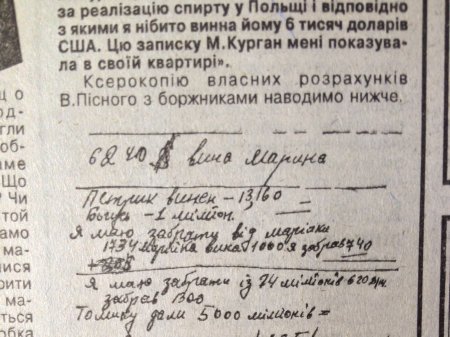 за реалізацію спирту у Польщі і відповідно
з якими я нібито винна йому 6 тисяч доларів
США. Цю записку М.Курган мені показува-
ла в своїй квартирі».
Ксерокопію власних розрахунків
В.Пісного з боржниками наводимо нижче.
6240 $ вина Марина
Петрик винен - 13,160
- 1 міліон.
Я маю забрати від
1734 вина 1000 я забрав 740
Я маю забрати із 24 міліонів 620
забрав 1300
Томику дали 5000 міліонів =
щ о
од-
гли
об-
аме
Що
Чи
той
амо
ма-
ися
рити
ма-
ться
обка